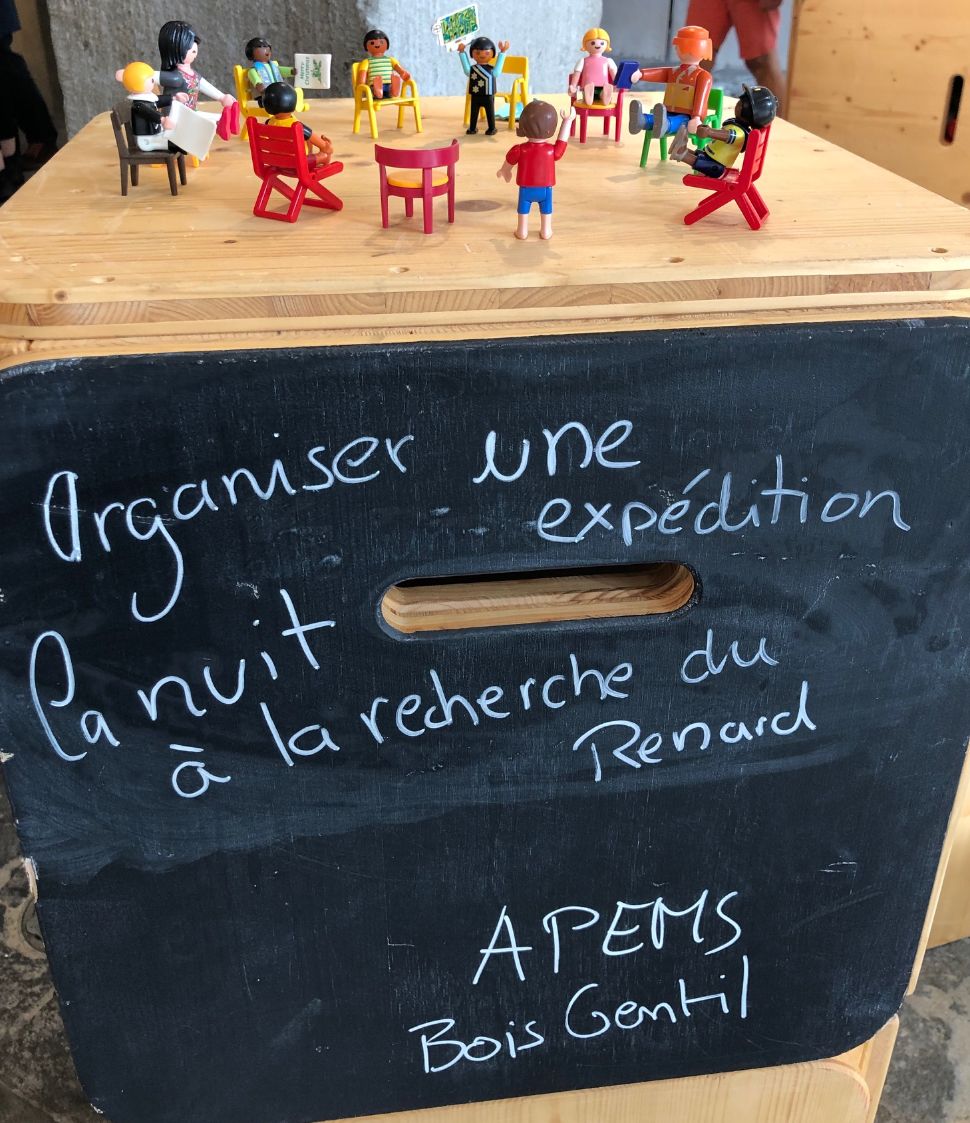 Organiser une
expédition
la nuit
à la recherche du
Renard
APEMS
Bois Gentil